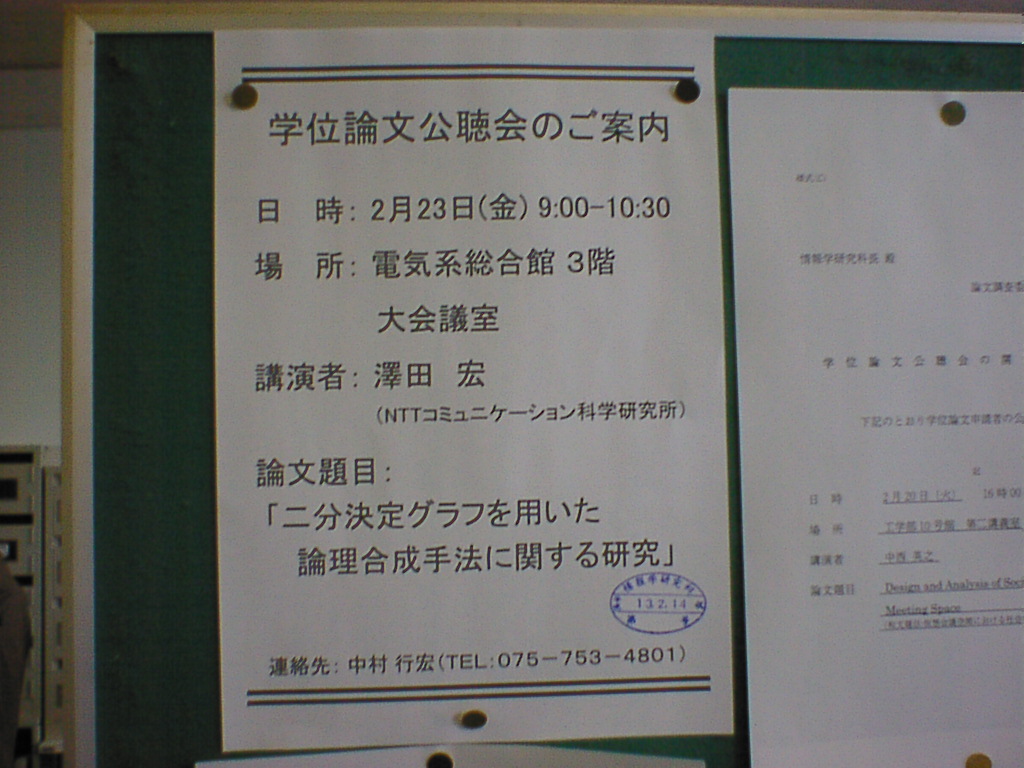 学位論文公聴会のご案内
日　時： 2月23日(金) 9:00-10:30
場　所： 電気系総合館 3階
大会議室
講演者： 澤田　宏
（NTTコミュニケーション科学研究所）
論文題目：
「二分決定グラフを用いた
論理合成手法に関する研究」
情報学研究科
13.2.14
第 号
連絡先： 中村 行宏（TEL：075－753－4801）
情報学研究科長 殿
論文調査委
学 位 論 文 公 聴 会 の 開
下記のとおり学位論文申請者の公
記
日 時 2月20日（火） 16時00
場 所 工学部10号館 第二講義室
講演者 中西 英之
論文題目 Design and Analysis of Soci
Meeting Space